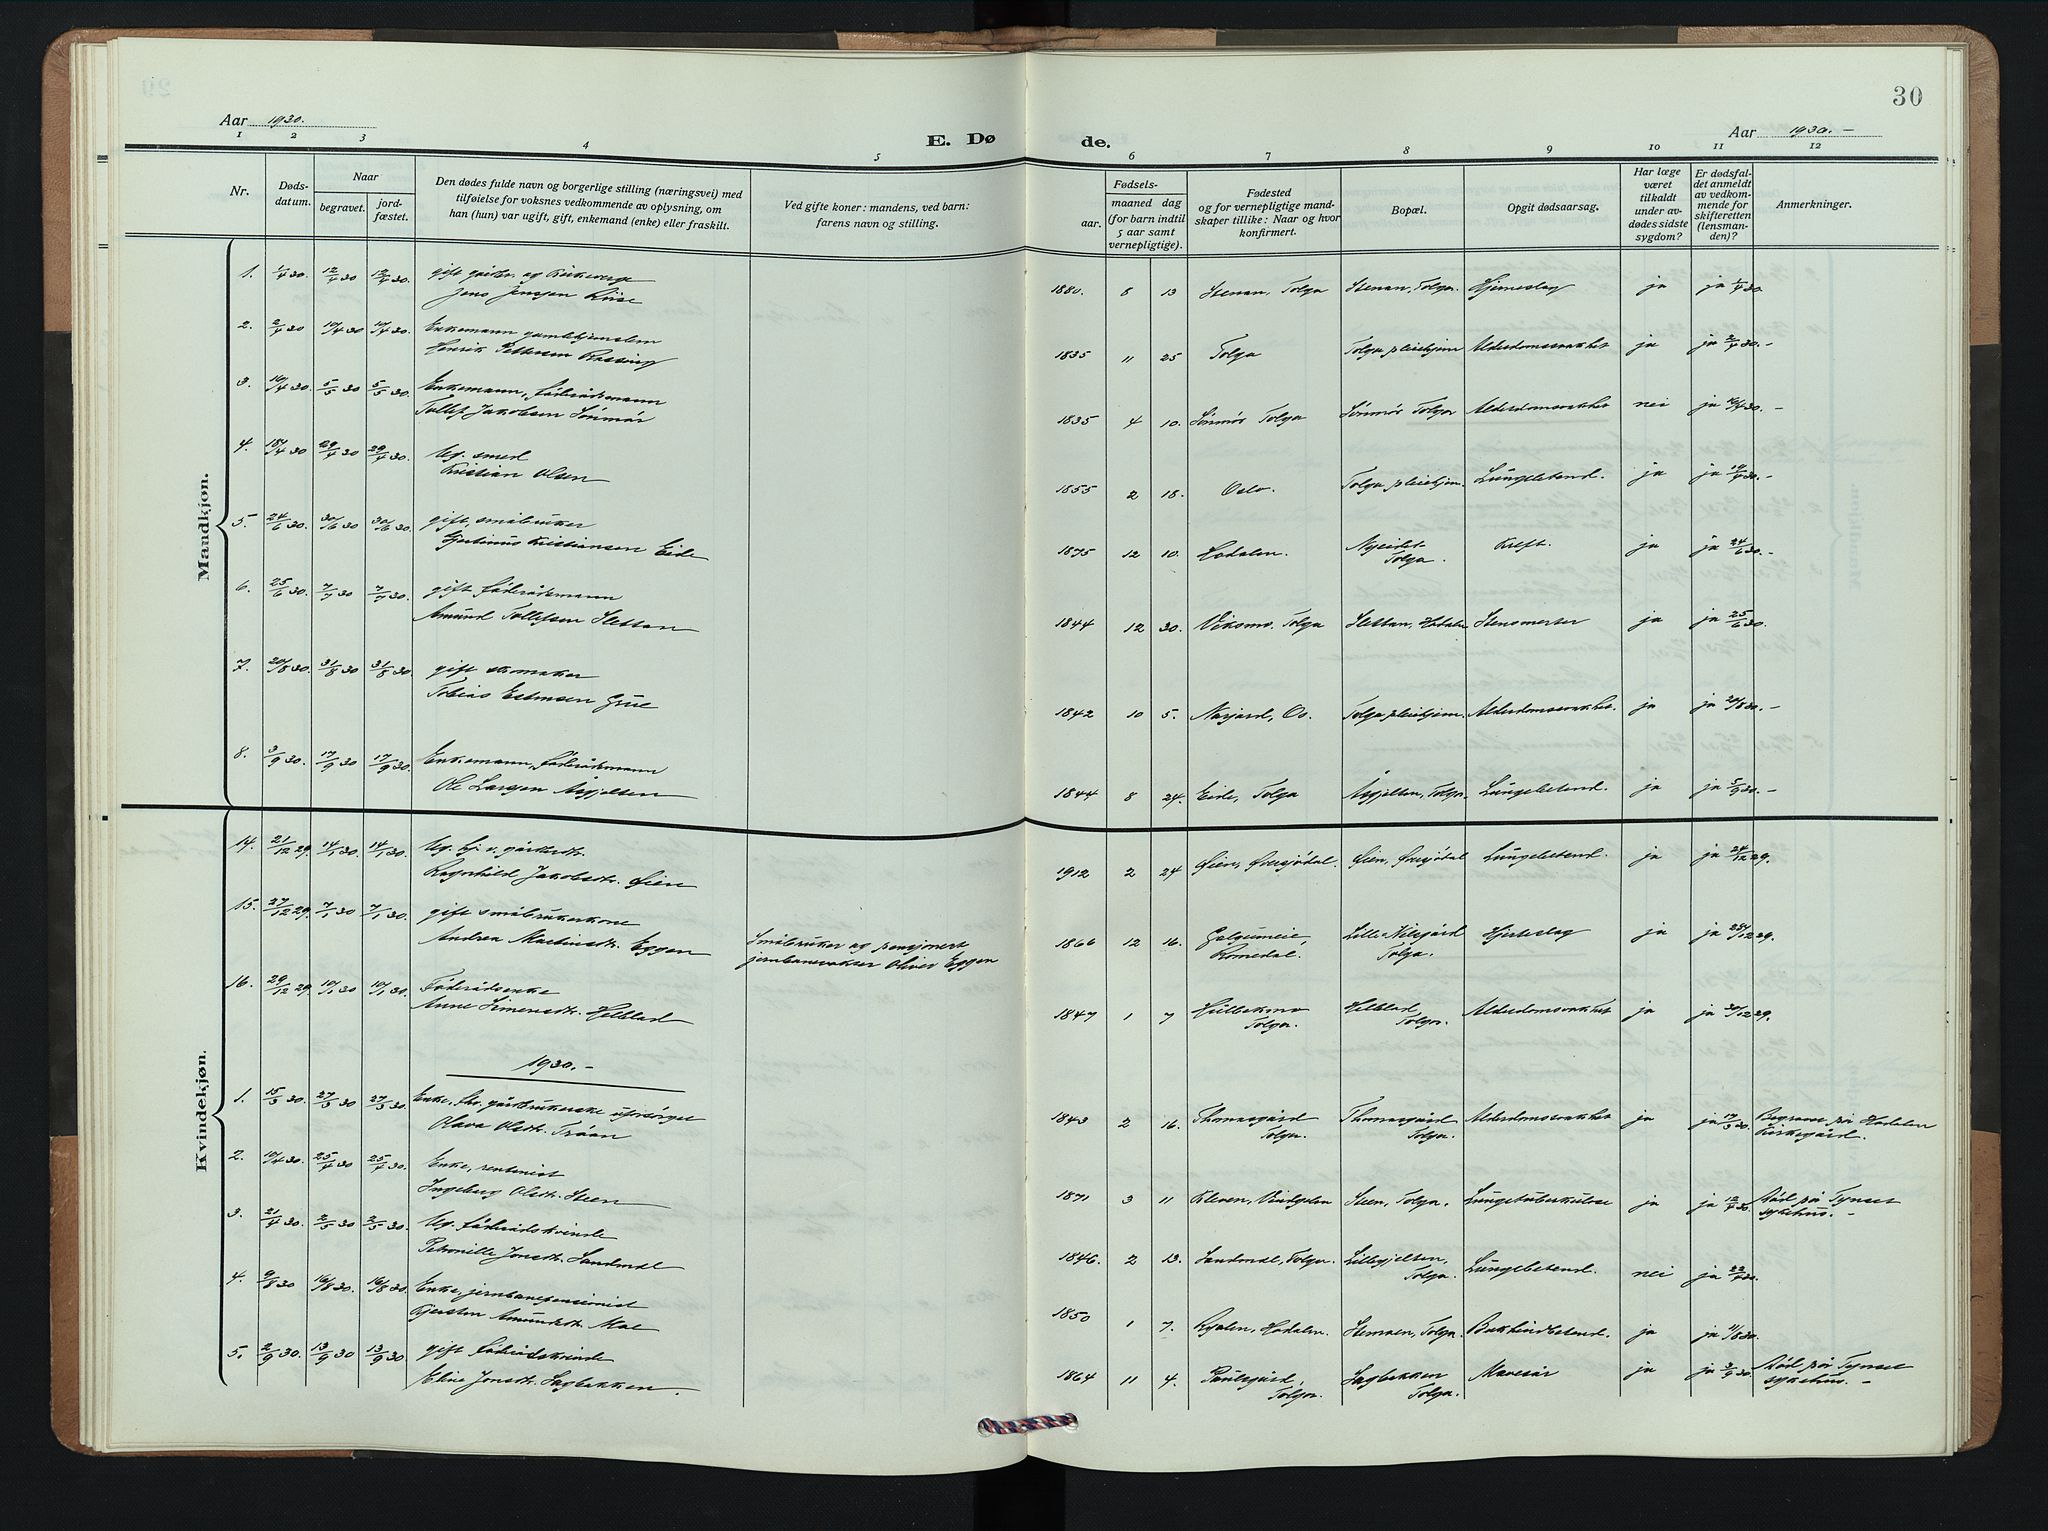 30
Aar 1930.
E. Dø
de.
Aar 1930.-
1 2 3 4 5 6 7 8 9 10 11 12
Nr.
Døds-
datum.
Naar
begravet.
jord-
fæstet.
Den dødes fulde navn og borgerlige stilling (næringsvei) med
tilføielse for voksnes vedkommende av oplysning, om
han (hun) var ugift, gift, enkemand (enke) eller fraskilt.
Ved gifte koner: mandens, ved barn:
farens navn og stilling.
Fødsels-
aar.
maaned dag
(for barn indtil
5 aar samt
vernepligtige).
Fødested
og for vernepligtige mand-
skaper tillike: Naar og hvor
konfirmert.
Bopæl.
Opgit dødsaarsag.
Har læge
været
tilkaldt
under av-
dødes sidste
sygdom?
Er dødsfal-
det anmeldt
av vedkom-
mende for
skifteretten
(lensman-
den)?
Anmerkninger.
Mandkjøn.
1. 1/4 30 12/4 30 12/4 30. gift gårdbr. og kirkeverge
Jens Jensen
1880. 8 13 Stenan, Tolga Stenan, Tolga. Hjerneslag ja ja 1/4 30.
2. 2/4 30 10/4 30 10/4 30. Enkemann gamlehjemslem
Henrik Pettersen
1835 11 25 Tolga Tolga pleiehjem Alderdomssvakhet ja ja 2/4 30.-
3. 10/4 30. 5/5 30 5/5 30. Enkemann, føderådsmann
Tollef Jakobsen Sømmør
1835 4 10. Sømmør Tolga Sømmør Tolga Alderdomssvakhet nei ja 30.-
4. 18/4 30. 29/4 30 29/4 30. Ug. smed
Kristian Olsen
1855 2 18. Oslo. Tolga pleiehjem. Lungebetend. ja ja 19/4 30.-
5. 24/6 30. 30/6 30 30/6 30. gift, småbruker
Kristiansen Eide
1875 12 10. Hodalen. Nyeidet
Tolga. Kreft. ja ja 24/6 30.-
6. 25/6 30. 7/7 30 7/7 30. gift føderådsmann
Amund Tollefsen Slettan
1844 12 30. Viksmo, Tolga Slettan, Hodalen Stensmerter ja ja 25/6 30.
7. 20/8 30. 31/8 30 31/8 30 gift skomaker
Tobias Estensen Grue
1842 10 5. Nasjord, Os. Tolga pleiehjem Alderdomssvakhet. ja ja 20/8 30.-
8. 3/9 30. 17/9 30 17/9 30. Enkemann, føderådsmann
Ole Larsen
1844 8 24. Eide, Tolga Tolga. Lungebetend. ja ja 5/9 30.-
Kvindekjøn.
14. 21/12 29. 14/1 30. 14/1 30. Ug. hj. v. gårdbrdtr.
Ragnhild Jakobsdtr. Øien
1912 2 24 Øien, Øversjødal. Øien, Øversjødal Lungebetend. ja ja 24/12 29.
15. 27/12 29. 7/1 30 7/1 30. gift småbrukerkone
Andrea Martinsdtr. Eggen
Småbruker og pensjonert
jernbanevokter Oliver Eggen
1866 12 16.
Romedal. Lille Nilsgård
Tolga. Hjerteslag ja ja 12 29.
16. 29/12 29 10/1 30 10/1 30. Føderådsenke
Anne Simensdtr. Hilstad
1847 1 7 Hulbekmo
Tolga. Hilstad
Tolga. Alderdomssvakhet ja ja 30/12 29.
1930.-
1. 15/3 30. 27/3 30 27/3 30. Enke, fhv. gårdbrukerske uforsørget
Olava Olsdtr. Trøan
1843 2 16. Thomasgård
Tolga. Thomasgård
Tolga. Alderdomssvakhet ja ja 17/3 30. Begravet på Hodalen
kirkegård.
2. 10/4 30. 25/4 30 25/4 30. Enke, rentenist
Ingeborg Olsdtr. Steen
1871 3 11 Kleven, Vingelen Steen, Tolga. Lungetuberkulose ja ja 12/4 30. Død på Tynset
sykehus.-
3. 21/4 30. 2/5 30 2/5 30. Ug. føderådskvinde
Petronille Jonsdtr. Sandmæl
1846. 2 13. Sandmæl, Tolga. Lillegjelten,
Tolga. Lungebetend. nei ja 22/4 30.
4. 9/8 30 16/8 30. 16/8 30. Enke, jernbanepensionist
Kjersten Amundsdtr. Moe
1850 1 7. Ryalen, Hodalen. Stemoen, Tolga. Bukhindbetend. ja ja 11/8 30.
5. 2/9 30. 13/9 30 13/9 30 gift føderådskvinde
Eline Jonsdtr. Sagbakken.
1864 11 4. Paulsgård,
Tolga. Sagbakken
Tolga. Mavesår ja ja 3/9 30. Død på Tynset
sykehus.-